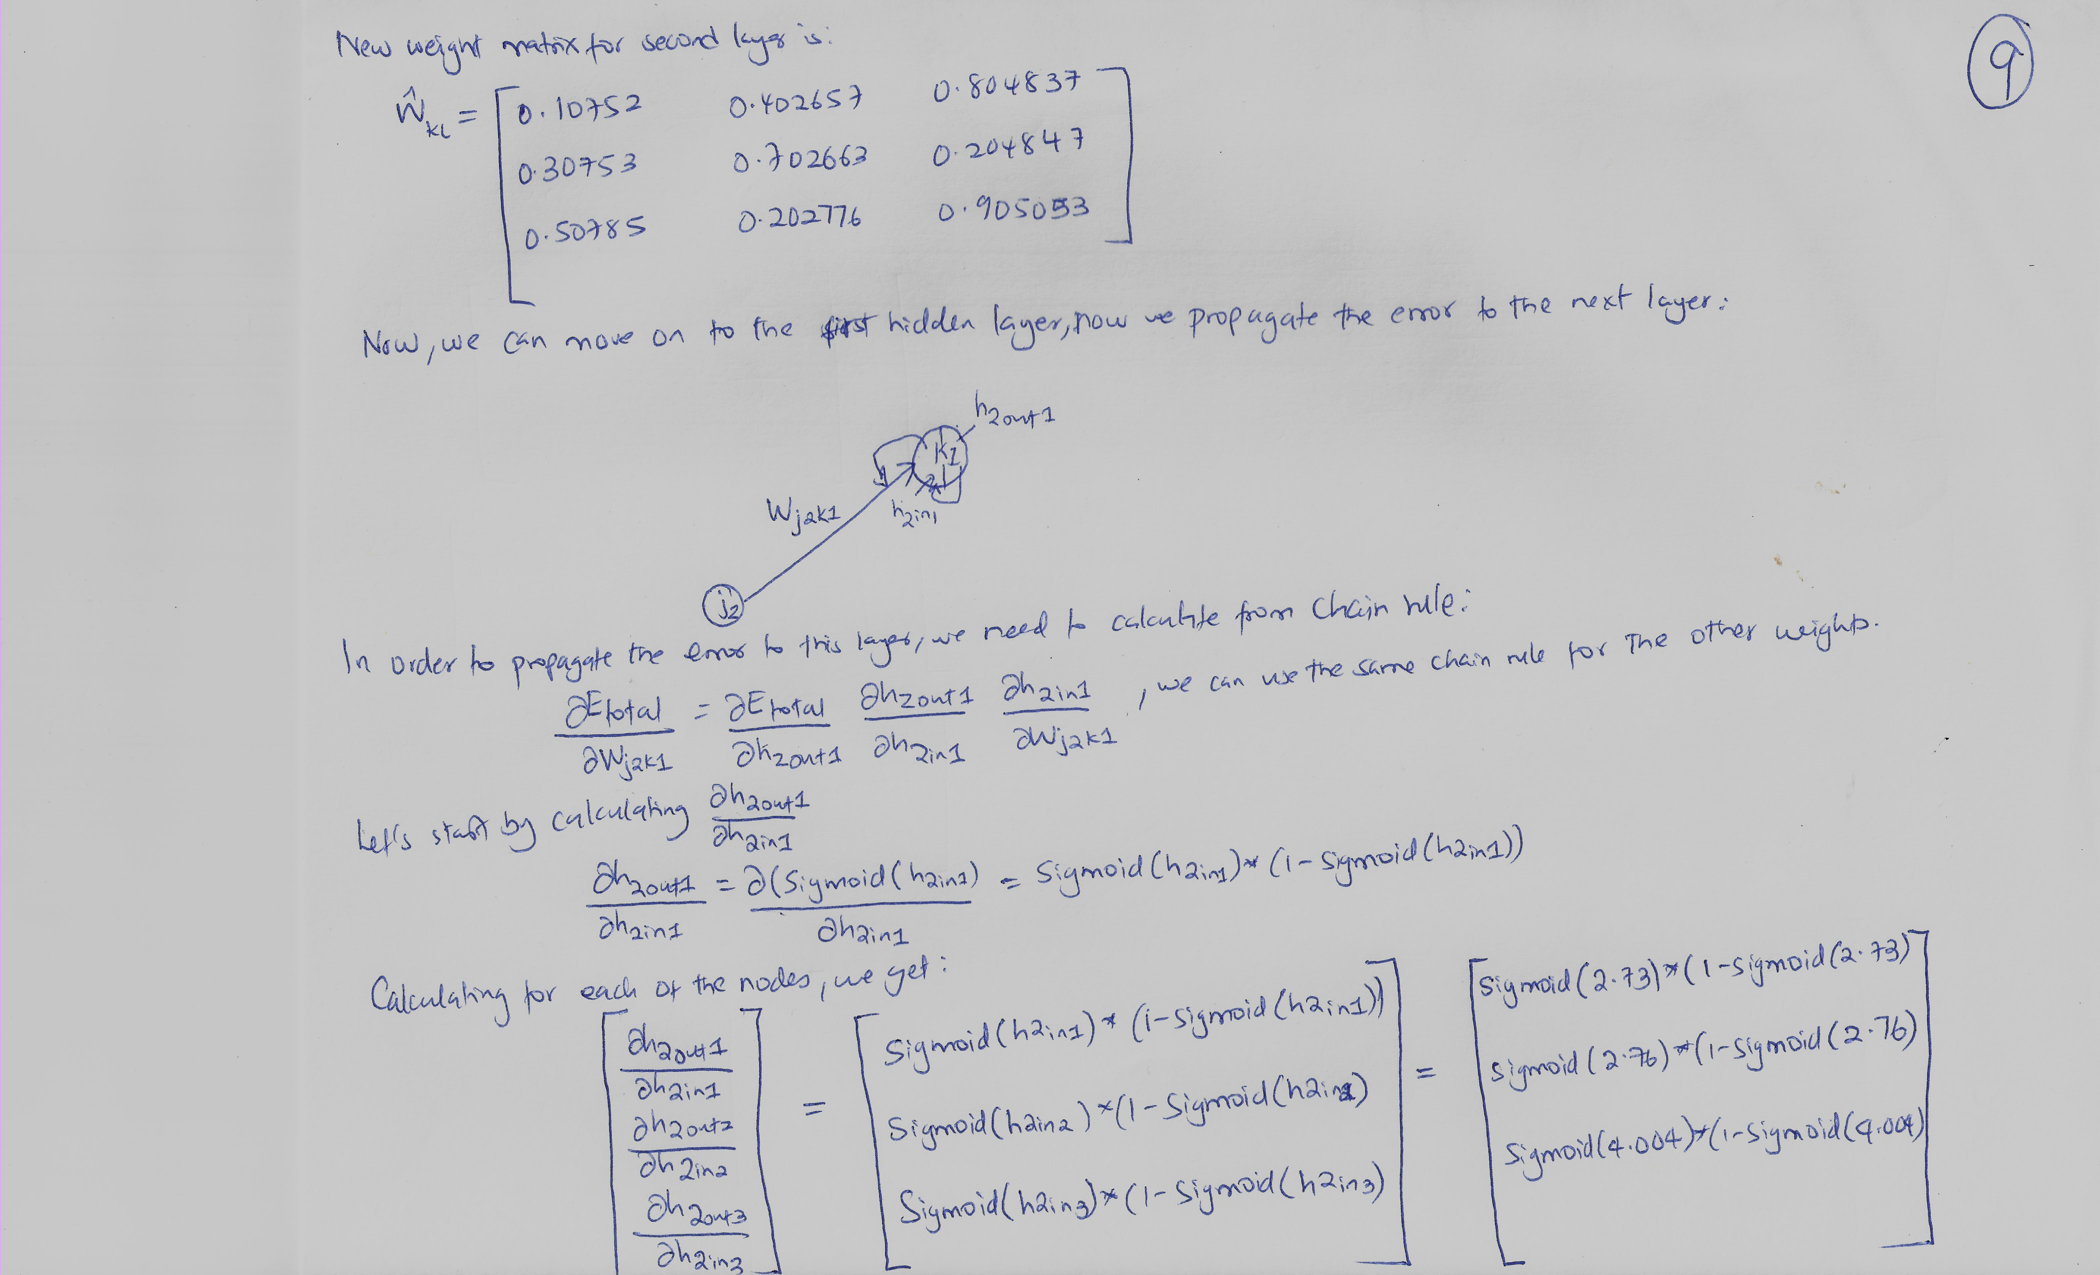 9
New weight matrix for second layer is:
Ŵ_KL = [ 0.10752 0.402657 0.804837
0.30753 0.702663 0.204847
0.50785 0.202776 0.905053 ]
Now, we can move on to the first hidden layer, now we propagate the error to the next layer:
h2out1
K1
Wj2k1
h2in1
j2
In order to propagate the error to this layer, we need to calculate from chain rule:
∂Etotal/∂Wj2k1 = ∂Etotal/∂h2out1 ∂h2out1/∂h2in1 ∂h2in1/∂Wj2k1 , we can use the same chain rule for the other weights.
Let's start by calculating ∂h2out1/∂h2in1
∂h2out1/∂h2in1 = ∂(Sigmoid(h2in1)/∂h2in1 = Sigmoid(h2in1)*(1-Sigmoid(h2in1))
Calculating for each of the nodes, we get:
[ ∂h2out1/∂h2in1 = [ Sigmoid(h2in1)*(1-Sigmoid(h2in1)) = [ Sigmoid(2.73)*(1-Sigmoid(2.73)
∂h2out2/∂h2in2 Sigmoid(h2in2)*(1-Sigmoid(h2in2) Sigmoid(2.76)*(1-Sigmoid(2.76)
∂h2out3/∂h2in3 ] Sigmoid(h2in3)*(1-Sigmoid(h2in3) ] Sigmoid(4.004)*(1-Sigmoid(4.004) ]